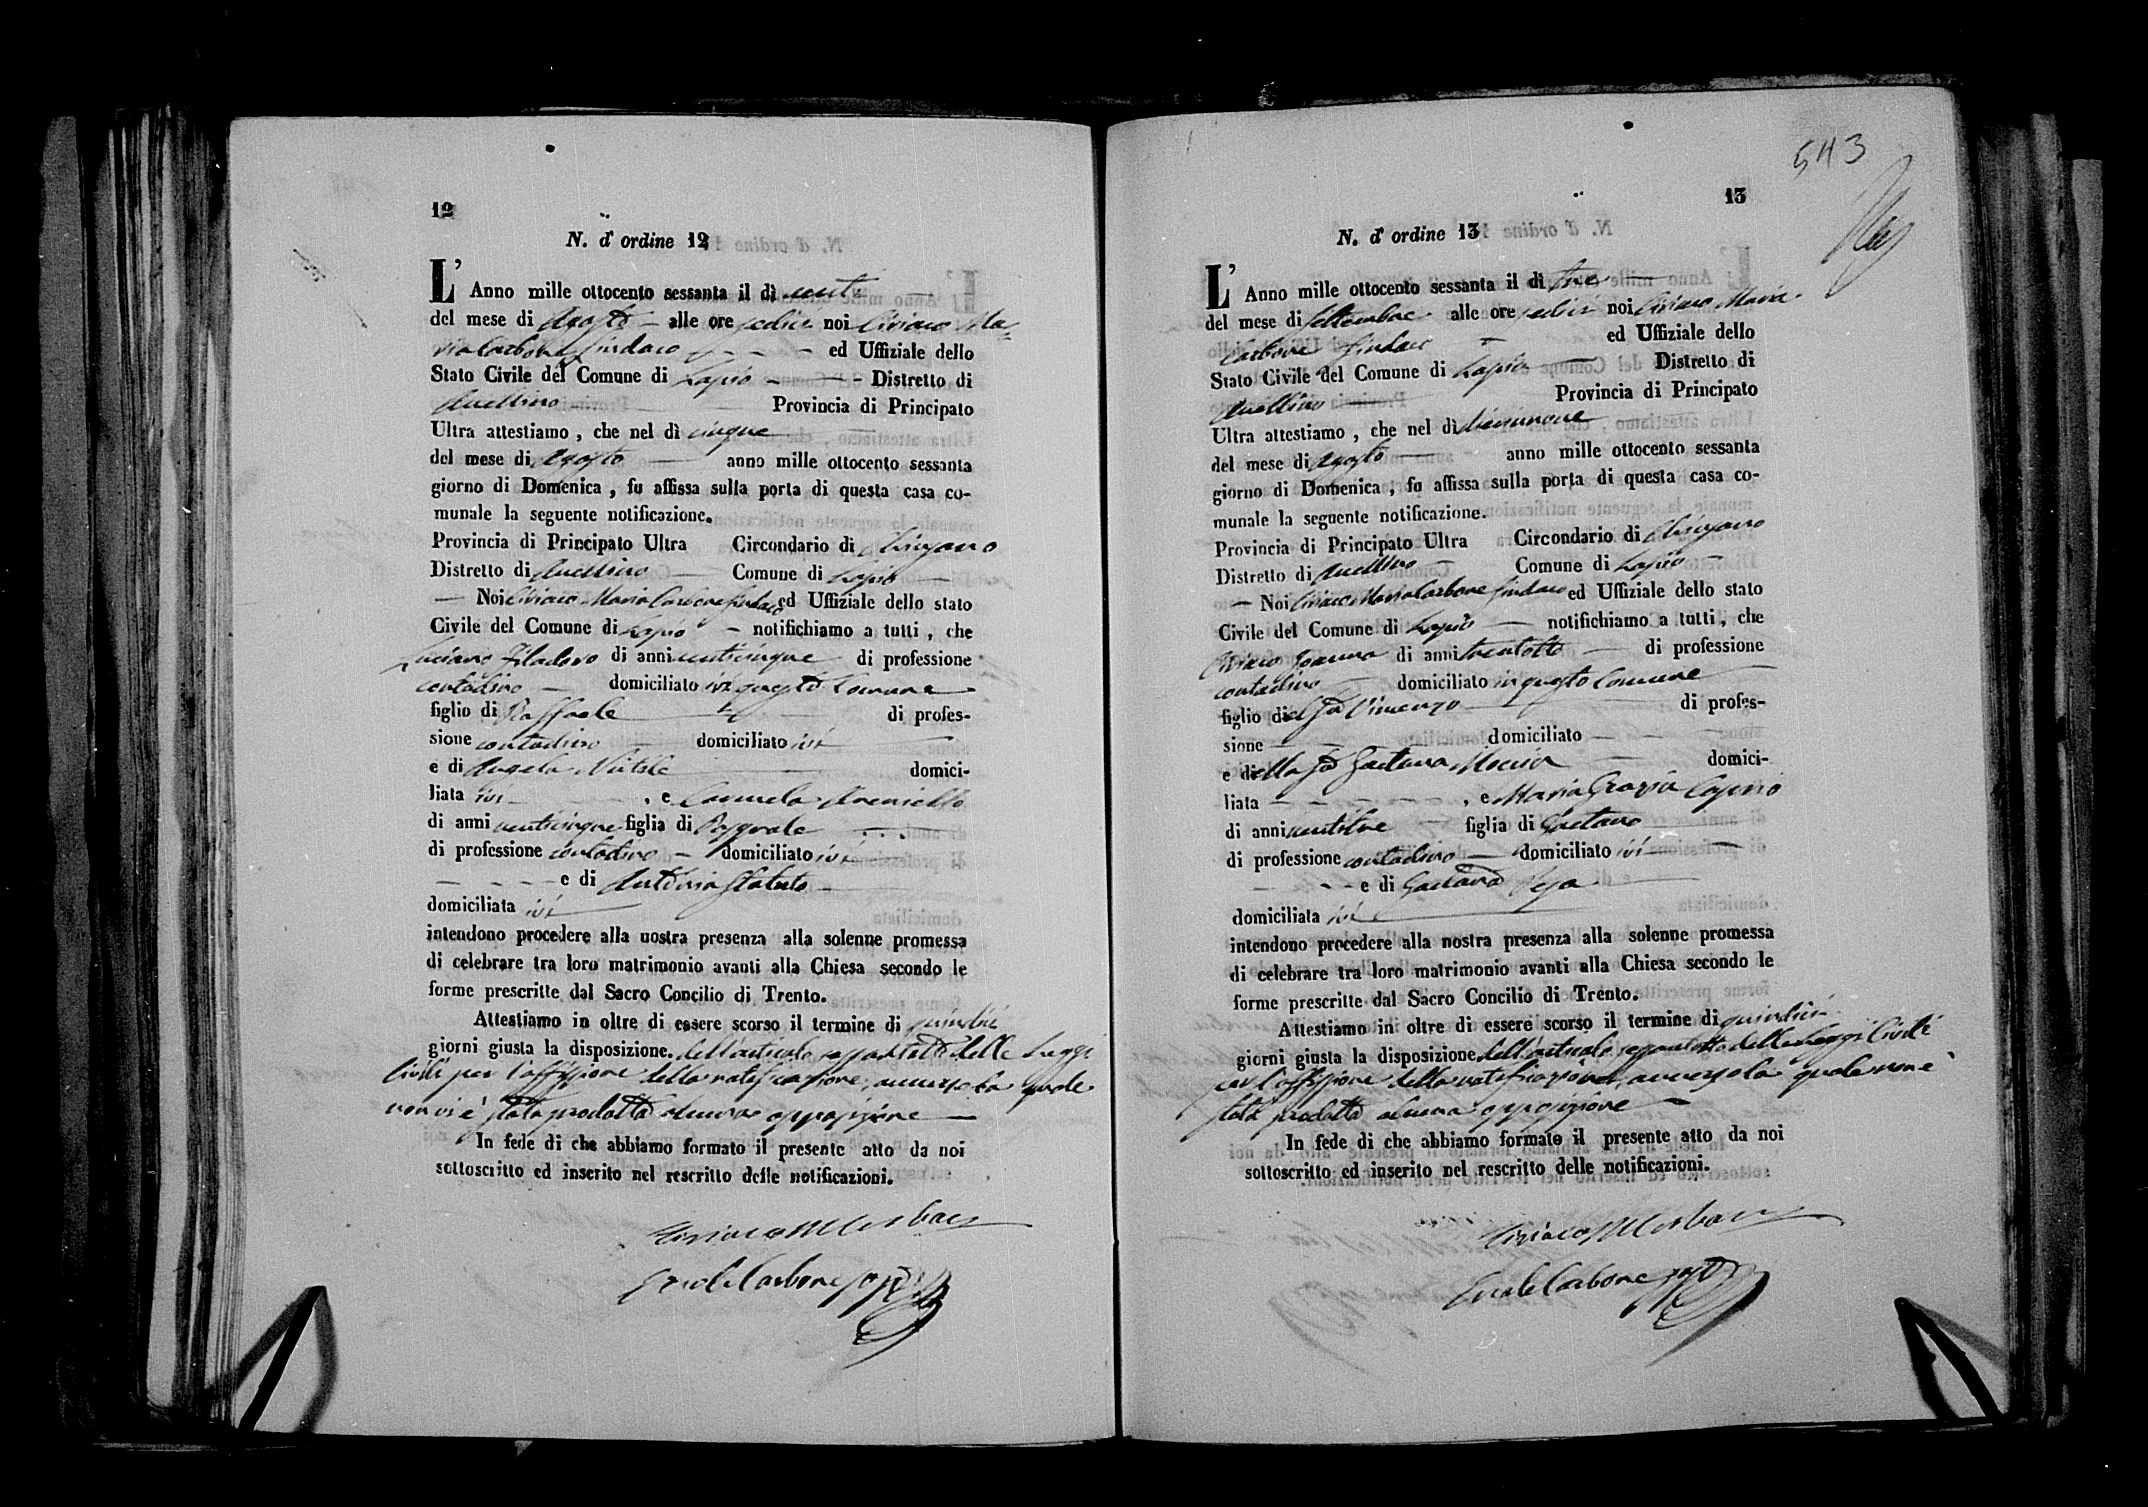 12
N. d'ordine 12
L'Anno mille ottocento sessanta il dì venti
del mese di Agosto alle ore sedici noi Ciriaco Ma=
ria Carbone Sindaco ed Uffiziale dello
Stato Civile del Comune di Lapio Distretto di
Avellino Provincia di Principato
Ultra attestiamo, che nel dì cinque
del mese di Agosto anno mille ottocento sessanta
giorno di Domenica, fu affissa sulla porta di questa casa co-
munale la seguente notificazione.
Provincia di Principato Ultra Circondario di Chiusano
Distretto di Avellino Comune di Lapio
Noi Ciriaco Maria Carbone Sindaco ed Uffiziale dello stato
Civile del Comune di Lapio notifichiamo a tutti, che
Luciano Filadoro di anni venticinque di professione
contadino domiciliato in questo Comune
figlio di Raffaele di profes-
sione contadino domiciliato ivi
e di Angela Natale domici-
liata ivi, e Carmela
di anni venticinque figlia di Pasquale
di professione contadino domiciliato ivi
e di Antonia Statuto
domiciliata ivi
intendono procedere alla nostra presenza alla solenne promessa
di celebrare tra loro matrimonio avanti alla Chiesa secondo le
forme prescritte dal Sacro Concilio di Trento.
Attestiamo in oltre di essere scorso il termine di quindici
giorni giusta la disposizione dell'articolo sessantotto delle Leggi
Civili per l'affissione della notificazione, avverso la quale
non vi è stata prodotta alcuna opposizione
In fede di che abbiamo formato il presente atto da noi
sottoscritto ed inserito nel rescritto delle notificazioni.
Ciriaco M Carbone
Carbone
543
13
N. d'ordine 13
L'Anno mille ottocento sessanta il dì tre
del mese di Settembre alle ore sedici noi Ciriaco Maria
Carbone Sindaco ed Uffiziale dello
Stato Civile del Comune di Lapio Distretto di
Avellino Provincia di Principato
Ultra attestiamo, che nel dì diecinnove
del mese di Agosto anno mille ottocento sessanta
giorno di Domenica, fu affissa sulla porta di questa casa co-
munale la seguente notificazione.
Provincia di Principato Ultra Circondario di Chiusano
Distretto di Avellino Comune di Lapio
Noi Ciriaco Maria Carbone Sindaco ed Uffiziale dello stato
Civile del Comune di Lapio notifichiamo a tutti, che
Ciriaco di anni trentotto di professione
contadino domiciliato in questo Comune
figlio del fu Vincenzo di profes-
sione domiciliato
e della fu Gaetana domici-
liata, e Maria Grazia
di anni ventitre figlia di Gaetano
di professione contadino domiciliato ivi
e di Gaetana
domiciliata ivi
intendono procedere alla nostra presenza alla solenne promessa
di celebrare tra loro matrimonio avanti alla Chiesa secondo le
forme prescritte dal Sacro Concilio di Trento.
Attestiamo in oltre di essere scorso il termine di quindici
giorni giusta la disposizione dell'articolo sessantotto delle Leggi Civili
per l'affissione della notificazione, avverso la quale non è
stata prodotta alcuna opposizione
In fede di che abbiamo formato il presente atto da noi
sottoscritto ed inserito nel rescritto delle notificazioni.
Ciriaco M Carbone
Carbone